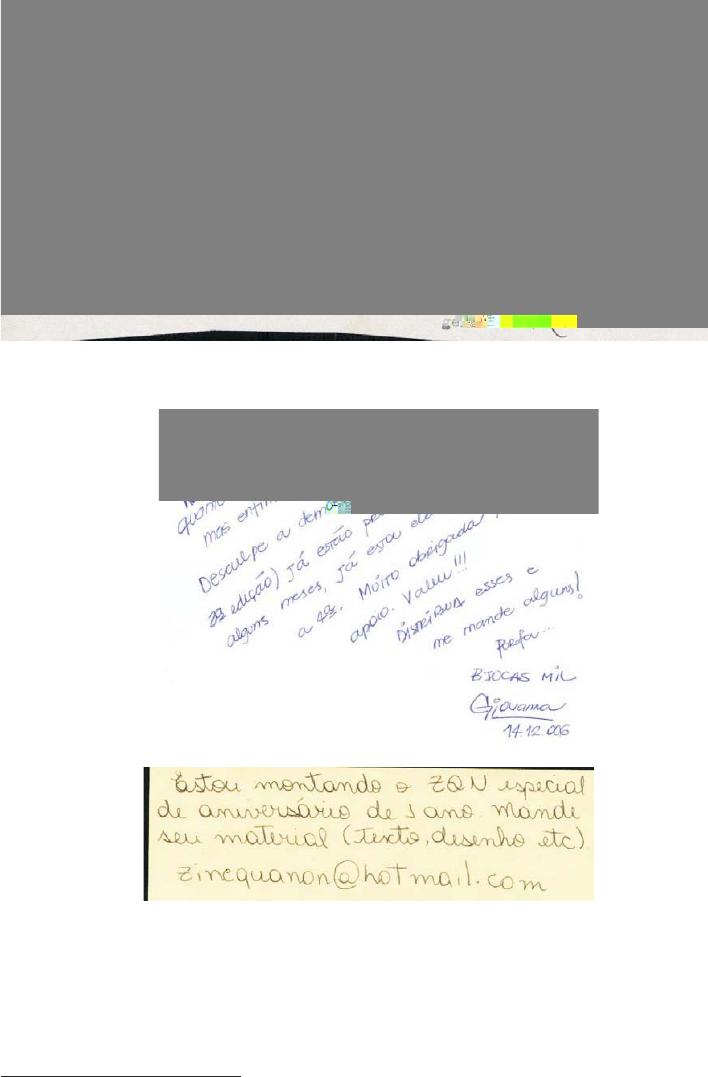 mas enfim
Desculpe a demo
3ª edição) já estão pr
alguns meses, já estou el
a 4ª. Muito obrigada
apoio. Valeu!!!
Distribua esses e
me mande alguns!
Porfa...
BJOCAS MIL
Giovanna
14.12.006
Estou montando o ZQN especial
de aniversário de 1 ano. Mande
seu material (texto, desenho etc)
zinequanon@hotmail.com